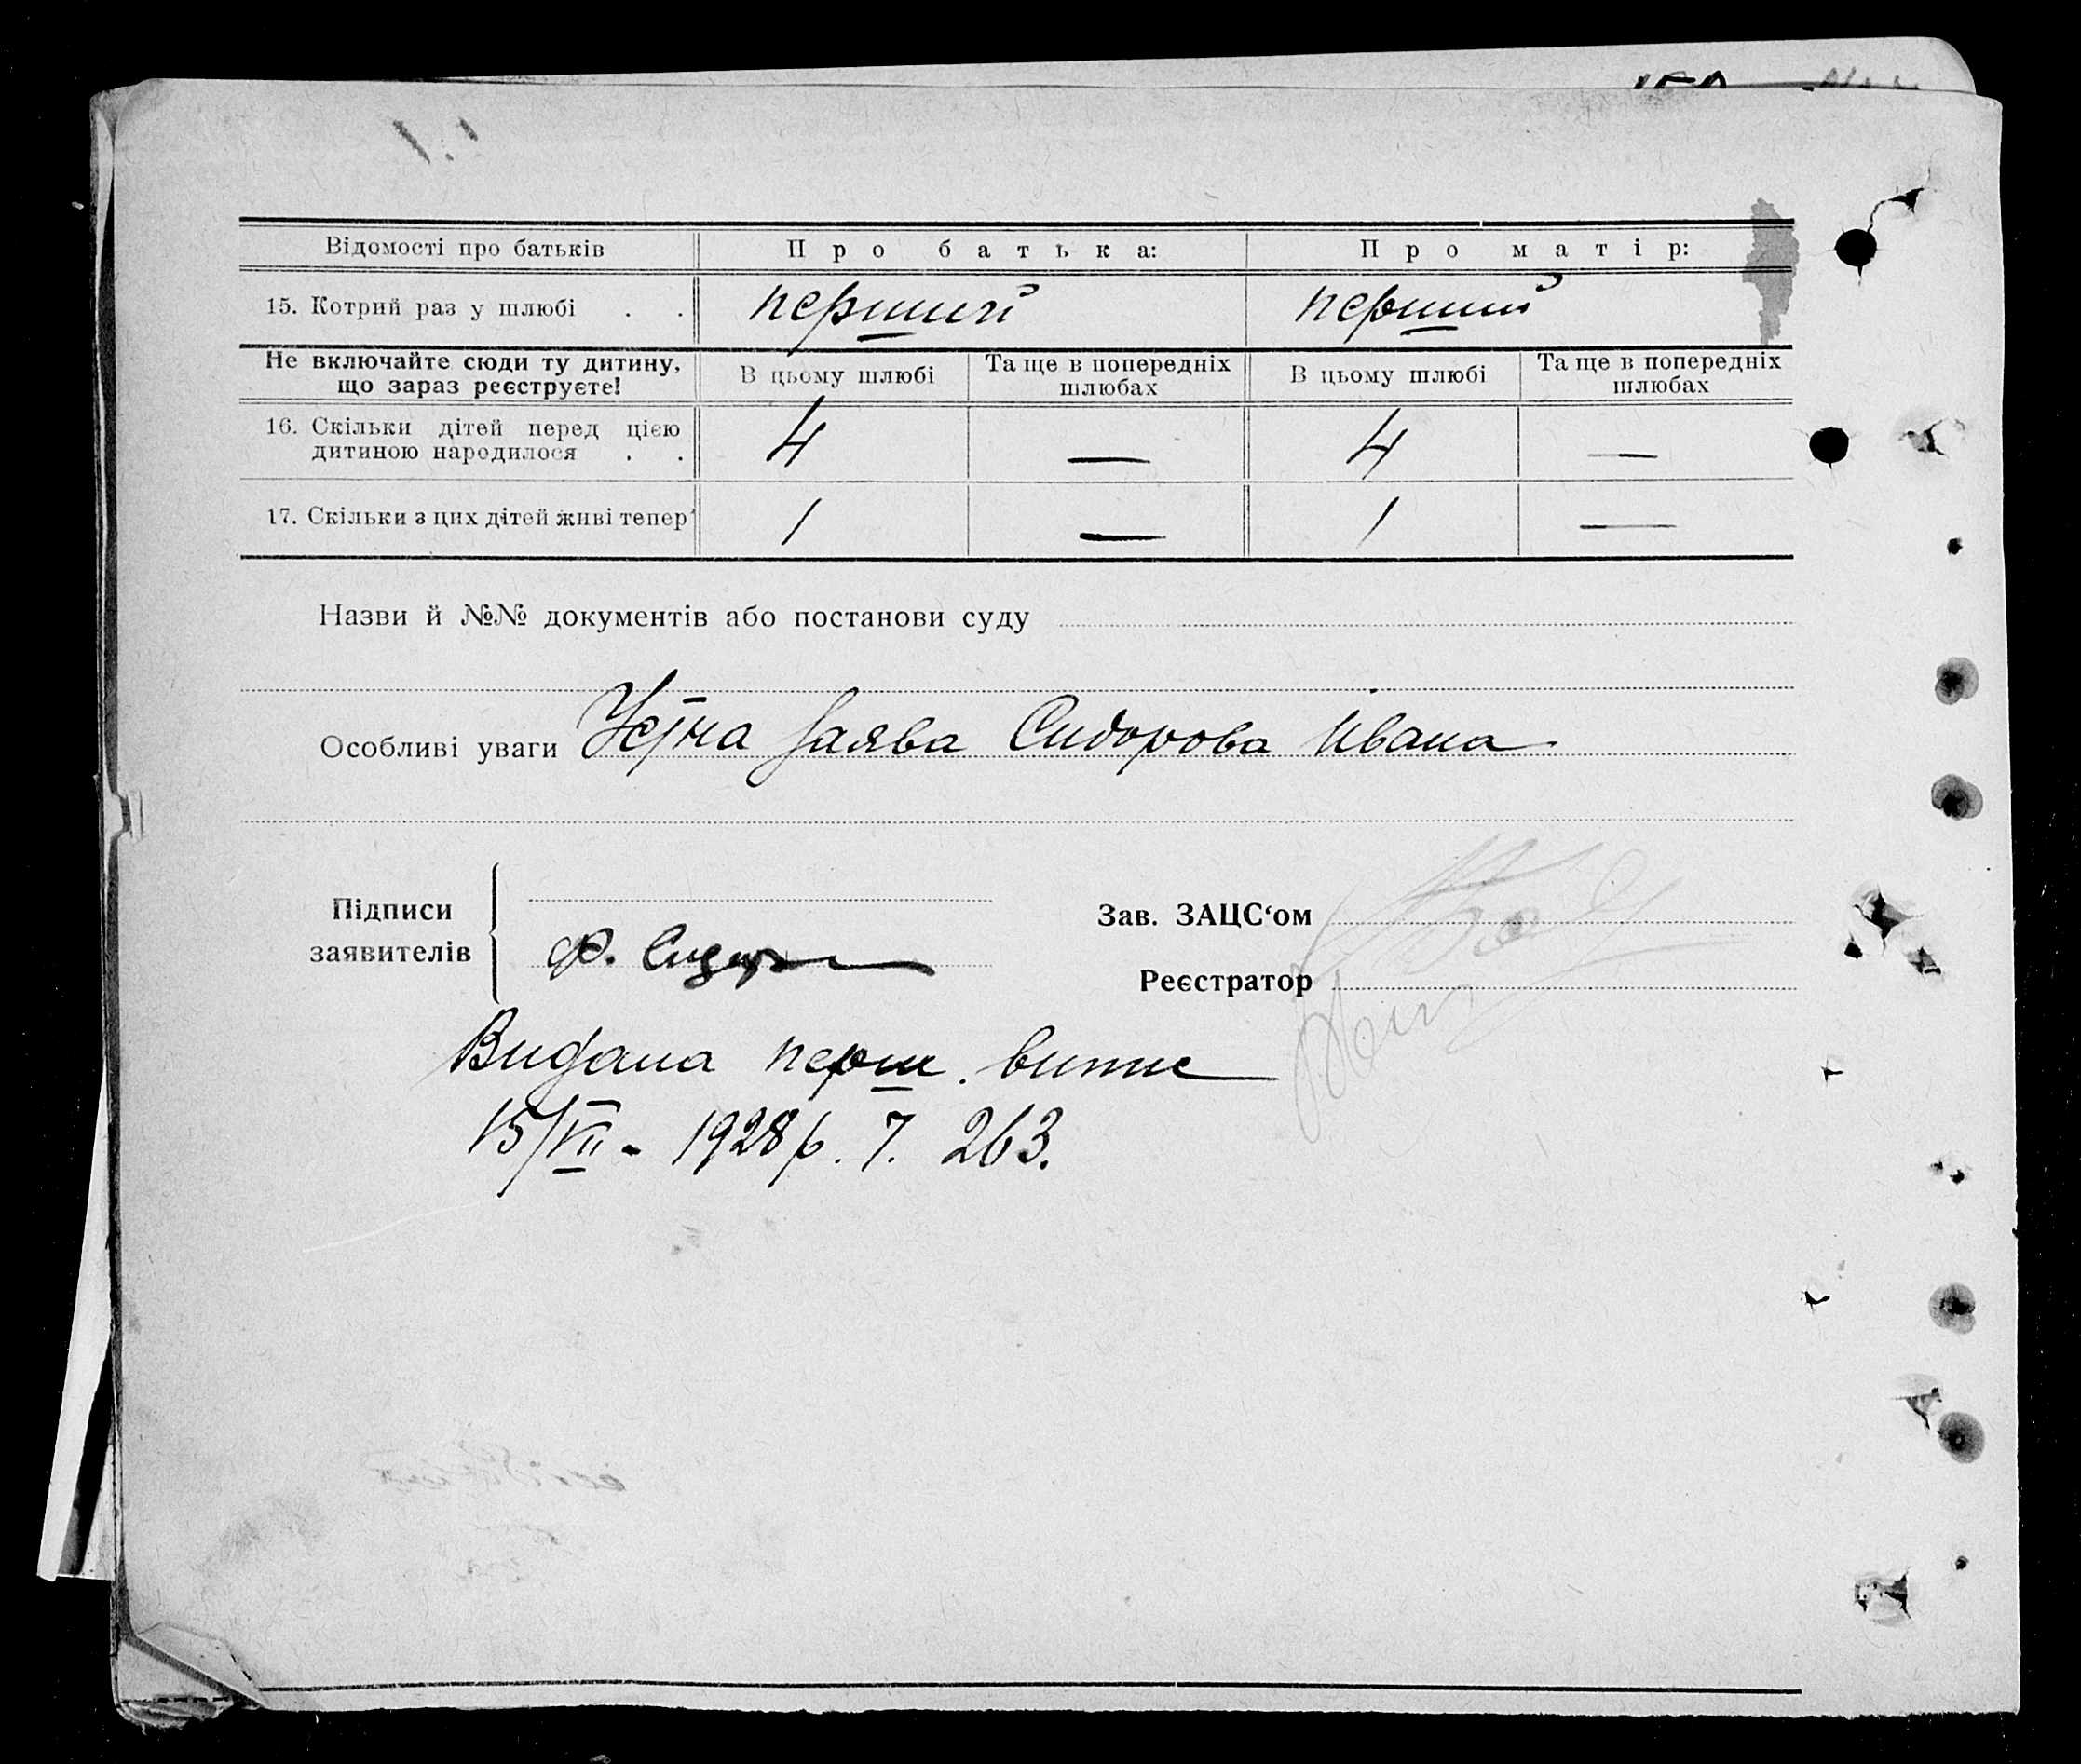 Відомості про батьків Про батька: Про матір:
15. Котрий раз у шлюбі . . перший перший
Не включайте сюди ту дитину, що зараз реєструєте! В цьому шлюбі Та ще в попередніх шлюбах В цьому шлюбі Та ще в попередніх шлюбах
16. Скільки дітей перед цією дитиною народилося . . 4 — 4 —
17. Скільки з цих дітей живі тепер 1 — 1 —
Назви й №№ документів або постанови суду
Особливі уваги Усна заява Сидорова Івана
Підписи заявителів
Зав. ЗАЦС‘ом
Реєстратор
Видана перш. випис
15/VII - 1928 р. 7. 263.